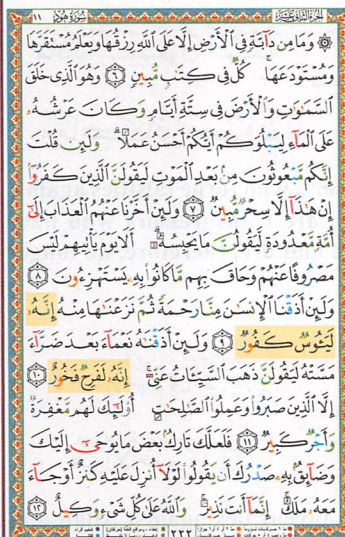 الجزء الثاني عشر سورة هود ١١
۞ وَمَا مِن دَآبَّةٍ فِي ٱلْأَرْضِ إِلَّا عَلَى ٱللَّهِ رِزْقُهَا وَيَعْلَمُ مُسْتَقَرَّهَا
وَمُسْتَوْدَعَهَا ۚ كُلٌّ فِي كِتَٰبٍ مُّبِينٍ ٦ وَهُوَ ٱلَّذِي خَلَقَ
ٱلسَّمَٰوَٰتِ وَٱلْأَرْضَ فِي سِتَّةِ أَيَّامٍ وَكَانَ عَرْشُهُۥ
عَلَى ٱلْمَآءِ لِيَبْلُوَكُمْ أَيُّكُمْ أَحْسَنُ عَمَلًا ۗ وَلَئِن قُلْتَ
إِنَّكُم مَّبْعُوثُونَ مِنۢ بَعْدِ ٱلْمَوْتِ لَيَقُولَنَّ ٱلَّذِينَ كَفَرُوٓا۟
إِنْ هَٰذَآ إِلَّا سِحْرٌ مُّبِينٌ ٧ وَلَئِنْ أَخَّرْنَا عَنْهُمُ ٱلْعَذَابَ إِلَىٰٓ
أُمَّةٍ مَّعْدُودَةٍ لَّيَقُولُنَّ مَا يَحْبِسُهُۥٓ ۗ أَلَا يَوْمَ يَأْتِيهِمْ لَيْسَ
مَصْرُوفًا عَنْهُمْ وَحَاقَ بِهِم مَّا كَانُوا۟ بِهِۦ يَسْتَهْزِءُونَ ٨
وَلَئِنْ أَذَقْنَا ٱلْإِنسَٰنَ مِنَّا رَحْمَةً ثُمَّ نَزَعْنَٰهَا مِنْهُ إِنَّهُۥ
لَيَـُٔوسٌ كَفُورٌ ٩ وَلَئِنْ أَذَقْنَٰهُ نَعْمَآءَ بَعْدَ ضَرَّآءَ
مَسَّتْهُ لَيَقُولَنَّ ذَهَبَ ٱلسَّيِّـَٔاتُ عَنِّيٓ ۚ إِنَّهُۥ لَفَرِحٌ فَخُورٌ ١٠
إِلَّا ٱلَّذِينَ صَبَرُوا۟ وَعَمِلُوا۟ ٱلصَّٰلِحَٰتِ أُو۟لَٰٓئِكَ لَهُم مَّغْفِرَةٌ
وَأَجْرٌ كَبِيرٌ ١١ فَلَعَلَّكَ تَارِكٌۢ بَعْضَ مَا يُوحَىٰٓ إِلَيْكَ
وَضَآئِقٌۢ بِهِۦ صَدْرُكَ أَن يَقُولُوا۟ لَوْلَآ أُنزِلَ عَلَيْهِ كَنزٌ أَوْ جَآءَ
مَعَهُۥ مَلَكٌ ۚ إِنَّمَآ أَنتَ نَذِيرٌ ۚ وَٱللَّهُ عَلَىٰ كُلِّ شَيْءٍ وَكِيلٌ ١٢
٢٢٢